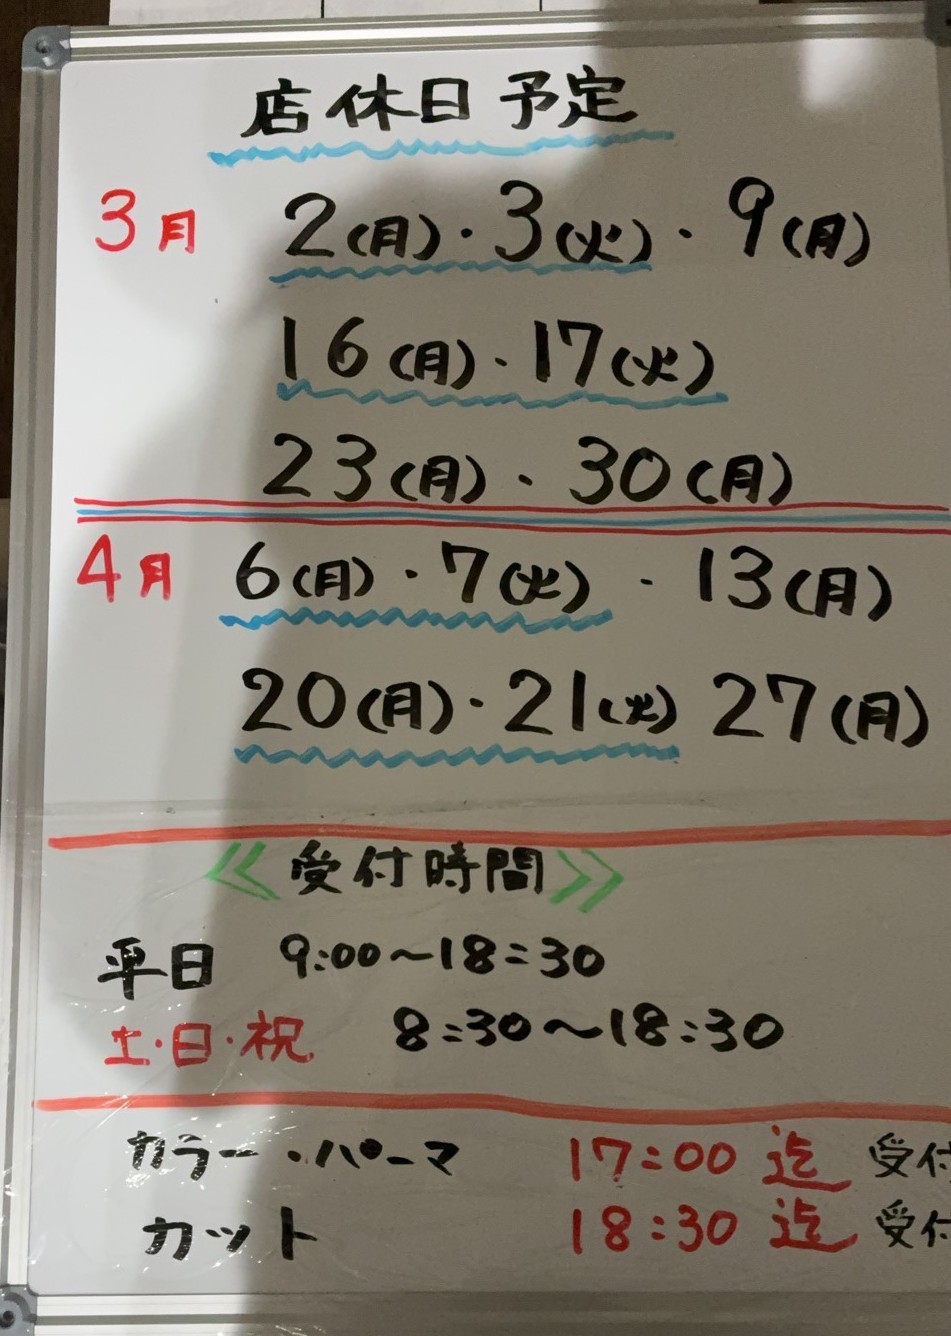 店休日予定
3月 2(月)・3(火)・9(月)
16(月)・17(火)
23(月)・30(月)
4月 6(月)・7(火)・13(月)
20(月)・21(火) 27(月)
《受付時間》
平日 9:00～18:30
土・日・祝 8:30～18:30
カラー・パーマ 17:00迄 受付
カット 18:30迄 受付